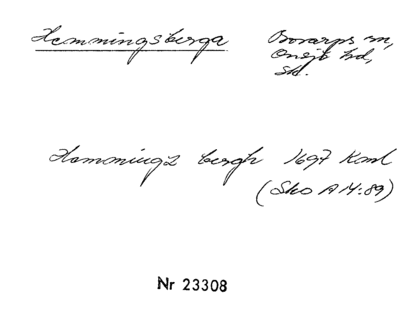 Hemmingsberga Bosarps sn,
Onsjö hd,
Sk.
Hemmingz bergh 1697 Kaml
(Sko A IV:89)
Nr 23308